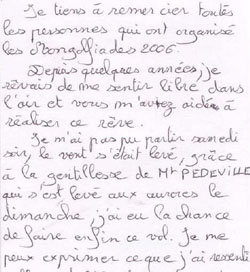 Je tiens à remercier toutes
les personnes qui ont organisé
les Mongolfiades 2006.
Depuis quelques années, je
rêvais de me sentir libre dans
l'air et vous m'avez aidée à
réaliser ce rêve.
Je n'ai pas pu partir samedi
soir, le vent s'était levé, grâce
à la gentillesse de Mr PEDEVILLE
qui s'est levé aux aurores le
dimanche j'ai eu la chance
de faire enfin ce vol. Je me
peux exprimer ce que j'ai ressenti